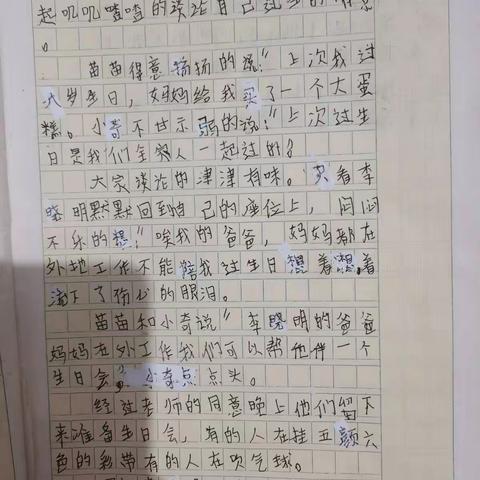 起叽叽喳喳的谈论自己过生的情景
。
苗苗得意扬扬的说：“上次我过
八岁生日，妈妈给我买了一个大蛋
糕。小奇不甘示弱的说：“上次过生
日是我们全家人一起过的？
大家谈论的津津有味。只看李
晓明默默回到自己的座位上，闷闷
不乐的想：“唉我的爸爸，妈妈都在
外地工作不能陪我过生日想着想着
流下了伤心的眼泪。
苗苗和小奇说“李晓明的爸爸
妈妈在外工作我们可以帮他伴一个
生日会，小奇点点头。
经过老师的同意晚上他们留下
来准备生日会，有的人在挂五颜六
色的彩带有的人在吹气球。